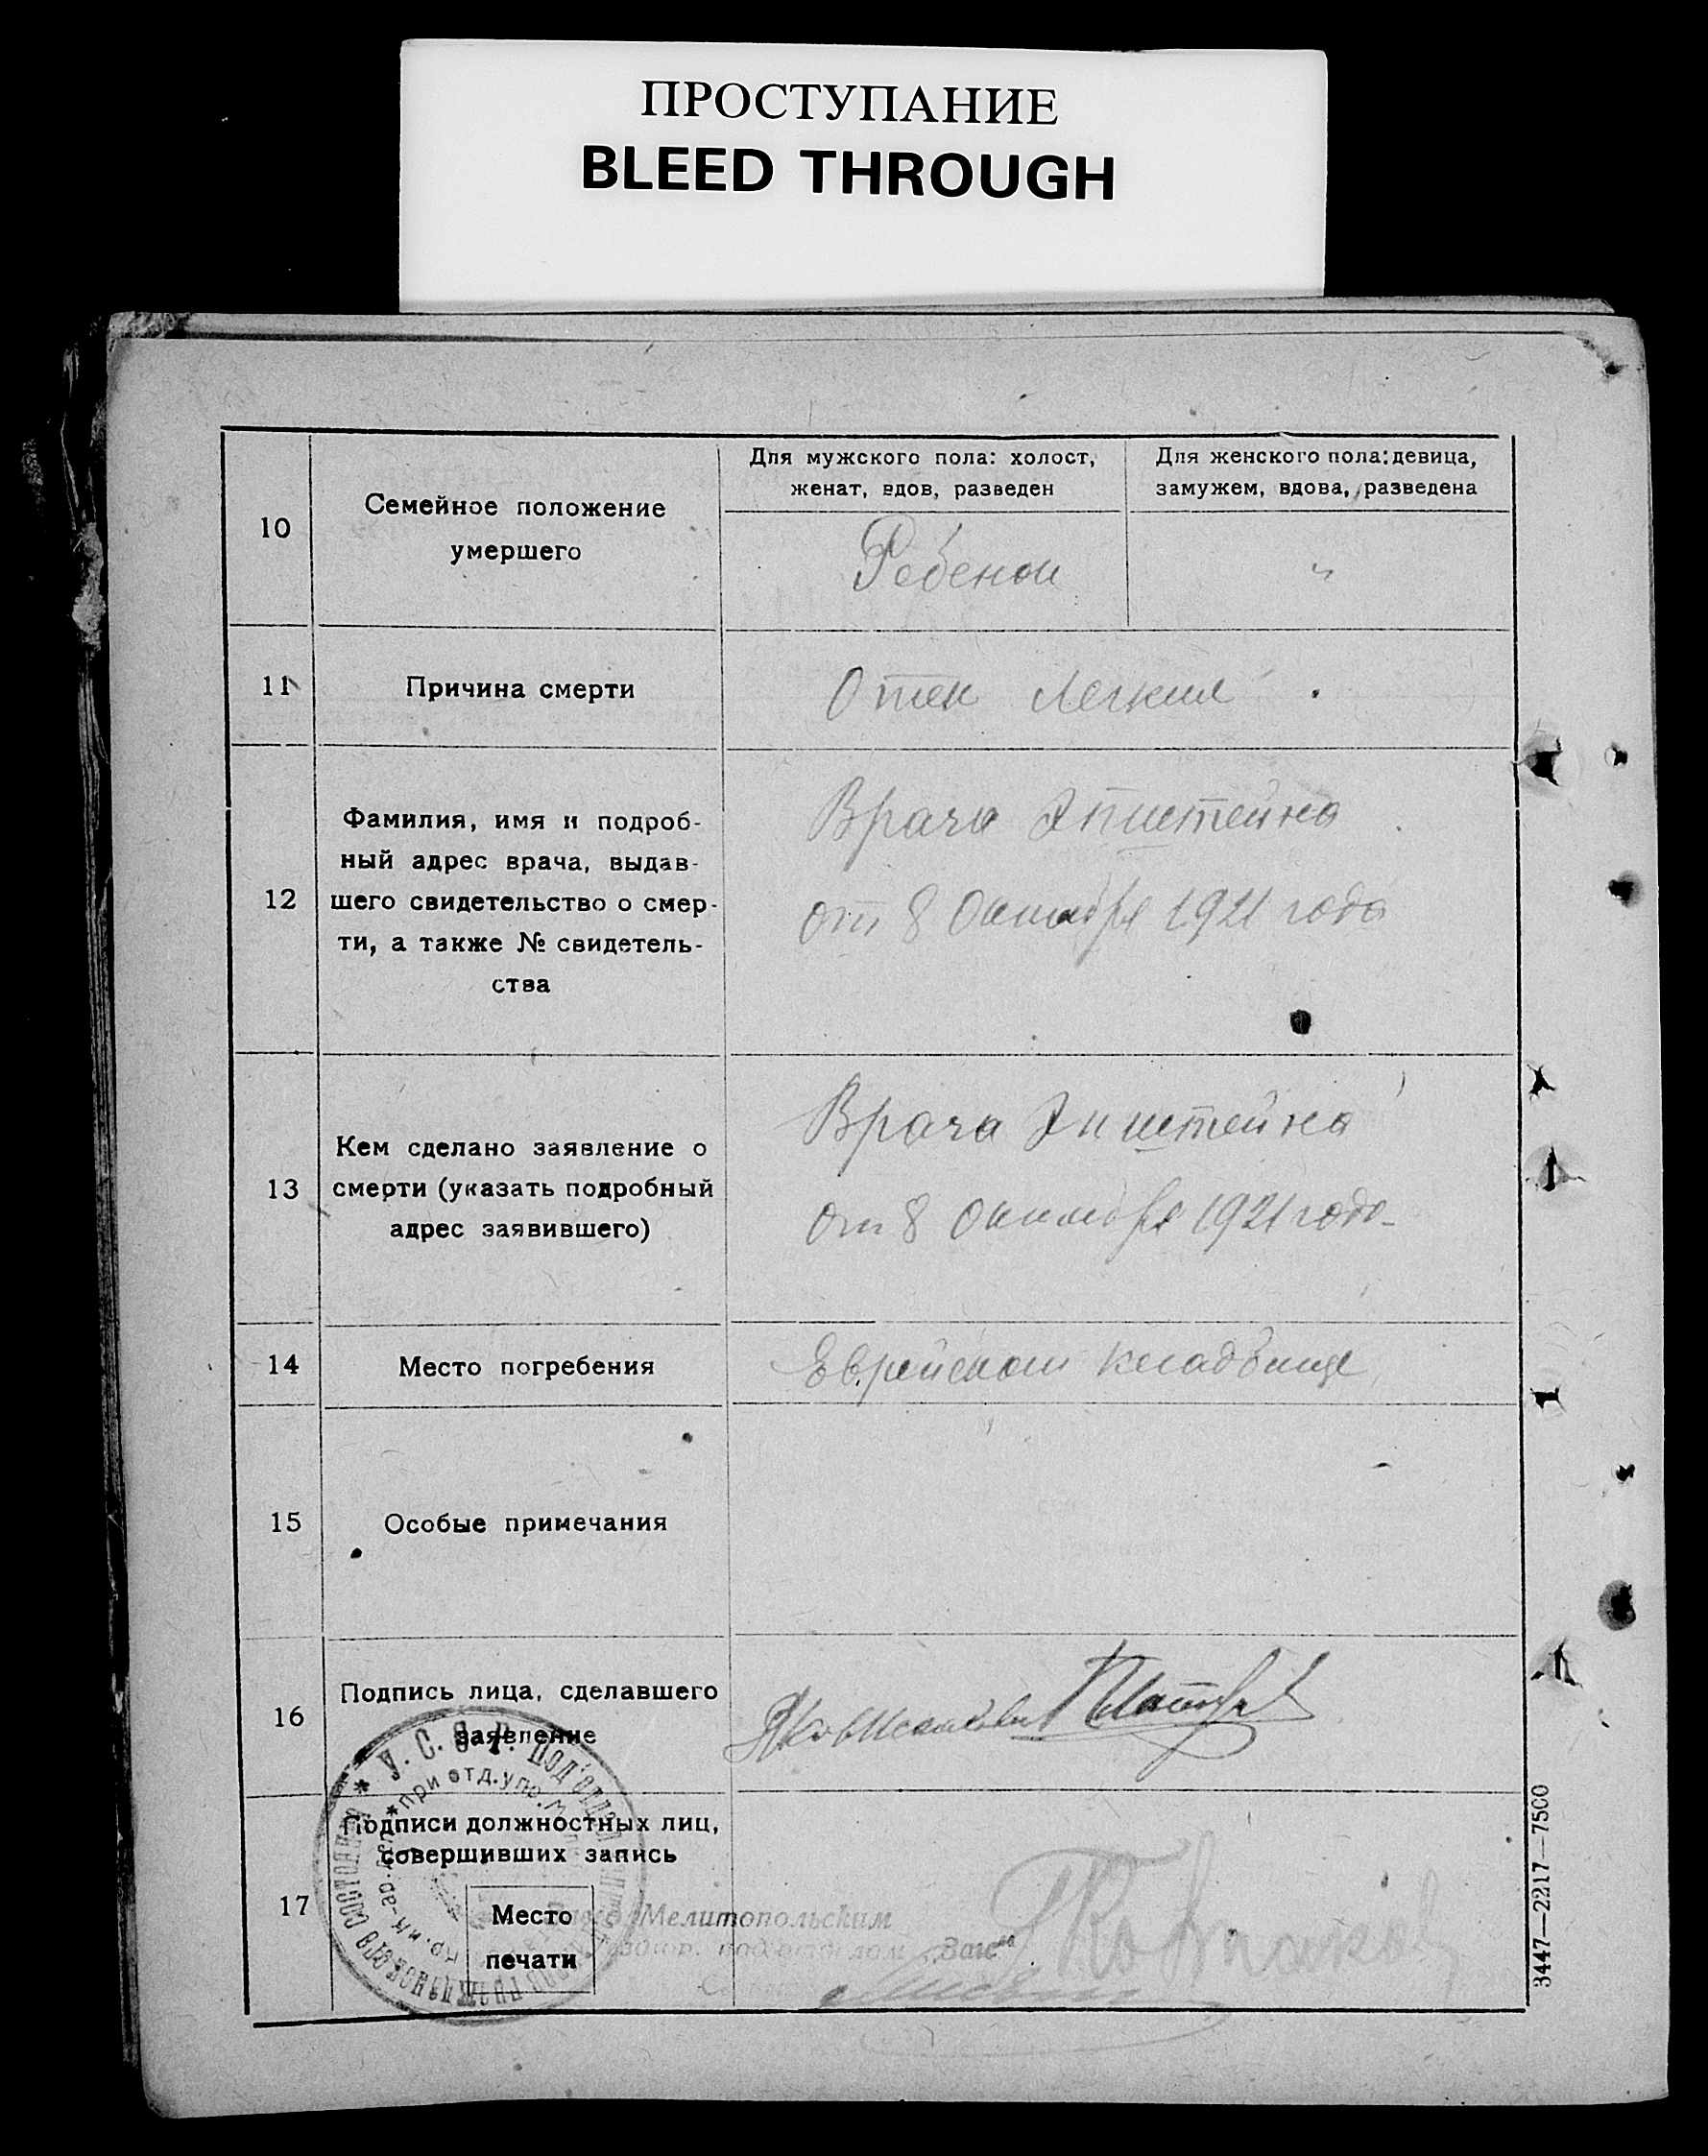 ПРОСТУПАНИЕ
BLEED THROUGH
10
Семейное положение
умершего
Для мужского пола: холост,
женат, вдов, разведен
Для женского пола: девица,
замужем, вдова, разведена
Ребенок
"
11
Причина смерти
Отек Легких
12
Фамилия, имя и подроб-
ный адрес врача, выдав-
шего свидетельство о смер-
ти, а также № свидетель-
ства
Врача Эпштейна
от 8 Октября 1921 года
13
Кем сделано заявление о
смерти (указать подробный
адрес заявившего)
Врача Эпштейна
от 8 Октября 1921 года
14
Место погребения
Еврейском кладбище
15
Особые примечания
16
Подпись лица, сделавшего
заявление
17
Подписи должностных лиц,
совершивших запись
Место
печати
У. С. С. Р. Под'отдел
при отд. упр.
гражданского состояния
Мелитопольским
под'отделом „Загс"
3447—2217—7500